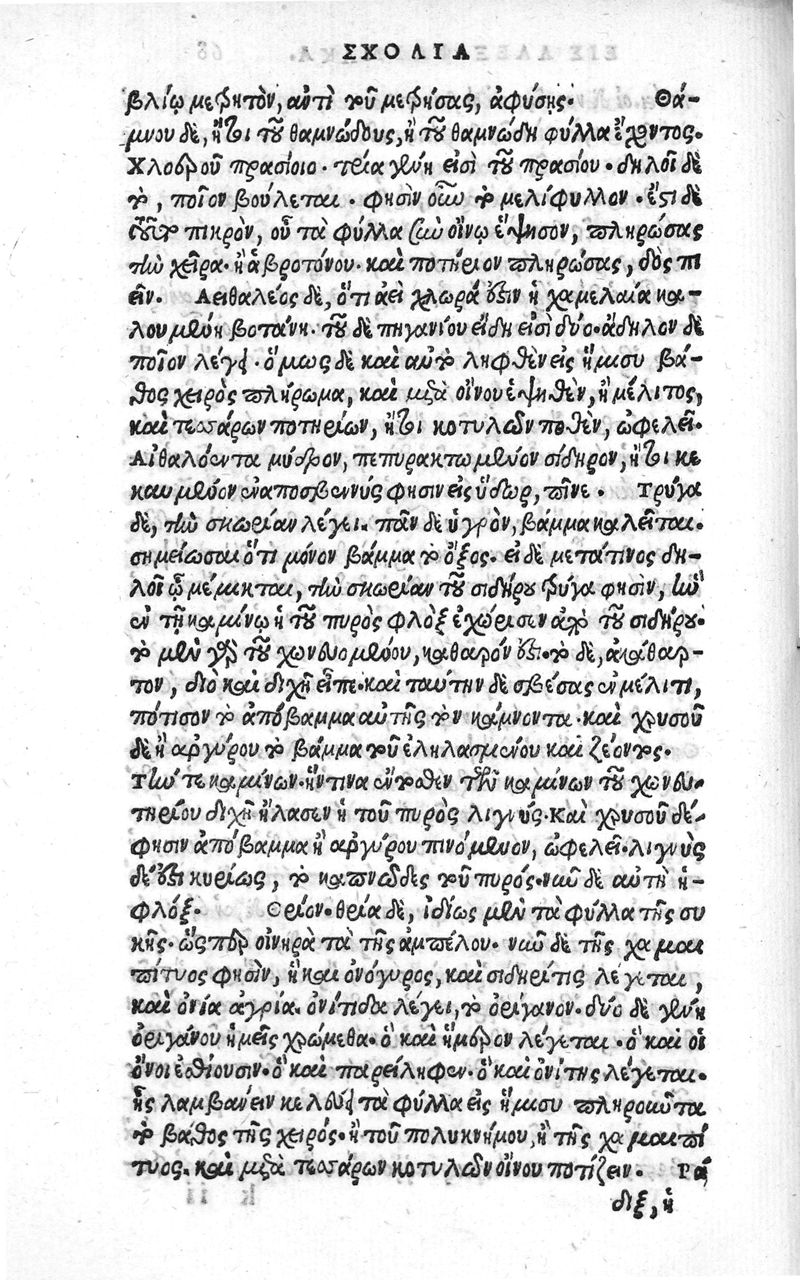 ΣΧΟΛΙΑ
βλίῳ μετρητὸν, ἀντὶ τοῦ μετρήσας, ἀφύσῃς. Θά-
μνου δὲ, ἤτοι τοῦ θαμνώδους, ἢ τοῦ θαμνώδη φύλλα ἔχοντος.
Χλοεροῦ πρασίοιο. τρία γένη εἰσὶ τοῦ πρασίου. δηλοῖ δὲ
τὸ, ποῖον βούλεται. φησὶν οὖν τὸ μελίφυλλον. ἔστι δὲ
τοῦτο πικρὸν, οὗ τὰ φύλλα σὺν οἴνῳ ἕψησον, πληρώσας
τὴν χεῖρα. ἢ ἁβροτόνου. καὶ ποτήριον πληρώσας, δὸς πι
εῖν. Αειθαλέος δὲ, ὅτι ἀεὶ χλωρά ἐστιν ἡ χαμελαία κα-
λουμένη βοτάνη. τοῦ δὲ πηγανίου εἴδη εἰσὶ δύο. ἄδηλον δὲ
ποῖον λέγει. ὅμως δὲ καὶ αὐτὸ ληφθὲν εἰς ἥμισυ βά-
θος χειρὸς πλήρωμα, καὶ μετὰ οἴνου ἑψηθὲν, ἢ μέλιτος,
καὶ τεσσάρων ποτηρίων, ἤτοι κοτυλῶν ποθὲν, ὠφελεῖ.
Αἰθαλόεντα μύδρον, πεπυρακτωμένον σίδηρον, ἤτοι κε
καυμένον ἐναποσβεννύς φησιν εἰς ὕδωρ, πῖνε. Τρύγα
δὲ, τὴν σκωρίαν λέγει. πᾶν δὲ ὑγρὸν, βάμμα καλεῖται.
σημείωσαι ὅτι μόνον βάμμα τὸ ὄξος. εἰ δὲ μετάτινος δη-
λοῖ ᾧ μέμικται, τὴν σκωρίαν τοῦ σιδήρου τρύγα φησὶν, ἣν
ἐν τῇ καμίνῳ ἡ τοῦ πυρὸς φλὸξ ἐχώρισεν ἀπὸ τοῦ σιδήρου.
τὸ μὲν γὰρ τοῦ χωνευομένου, καθαρόν ἐστι. τὸ δὲ, ἀκάθαρ-
τον, διὸ καὶ διχῆ εἶπε. καὶ ταύτην δὲ σβέσας ἐν μέλιτι,
πότισον τὸ ἀπόβαμμα αὐτῆς τὸν κάμνοντα. καὶ χρυσοῦ
δὲ ἢ ἀργύρου τὸ βάμμα τοῦ ἐληλασμένου καὶ ζέοντος.
Τήν τε καμίνων. ἥντινα ἔντοθεν τῶν καμίνων τοῦ χωνευ-
τηρίου διχῆ ἤλασεν ἡ τοῦ πυρὸς λιγνύς. Καὶ χρυσοῦ δέ
φησιν ἀπόβαμμα ἢ ἀργύρου πινόμενον, ὠφελεῖ. λιγνὺς
δέ ἐστι κυρίως, τὸ καπνῶδες τοῦ πυρός. νῦν δὲ αὐτὴ ἡ-
φλόξ. Θρίον. θρία δὲ, ἰδίως μὲν τὰ φύλλα τῆς συ
κῆς. ὥσπερ οἰνηρὰ τὰ τῆς ἀμπέλου. νῦν δὲ τῆς χαμαι
πίτυος φησὶν, ἢ καὶ ὀνόγυρος, καὶ σιδηρῖτις λέγεται,
καὶ ὀνία ἀγρία. ὀνίτιδα λέγει, τὸ ὀρίγανον. δύο δὲ γένη
ὀριγάνου ἡμεῖς χρώμεθα. ὃ καὶ ἥμερον λέγεται. ὃ καὶ οἱ
ὄνοι ἐσθίουσιν. ὃ καὶ παρείληφεν. ὃ καὶ ὀνίτης λέγεται.
ἧς λαμβάνειν κελεύει τὰ φύλλα εἰς ἥμισυ πληροῦντα
τὸ βάθος τῆς χειρός. ἢ τοῦ πολυκνήμου, ἢ τῆς χαμαιπί
τυος. καὶ μετὰ τεσσάρων κοτυλῶν οἴνου ποτίζειν. Ρά
διξ, ἡ